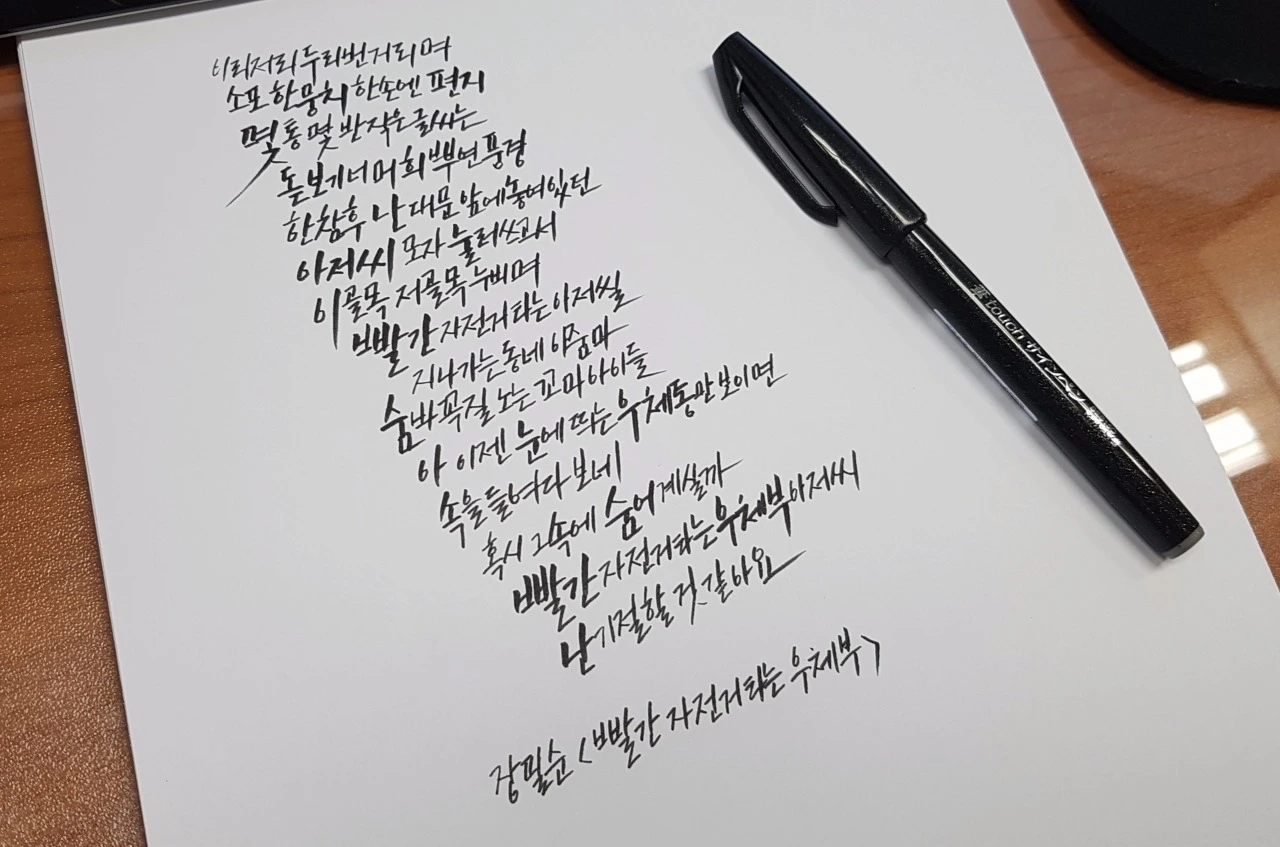 이리저리 두리번거리며
소포 한뭉치 한손에 편지
몇통 몇반 작은 글씨는
돋보기너머 희뿌연 풍경
한참후 난 대문앞에 놓여있던
아저씨 모자 눌러쓰고서
이골목 저골목 누비며
빨간 자전거 타는 아저씰
지나가는 동네 아줌마
숨바꼭질 노는 꼬마아이들
아 이젠 눈에 띄는 우체통만 보이면
속을 들여다 보네
혹시 그속에 숨어 계실까
빨간 자전거 타는 우체부 아저씨
난 기절할 것 같아요
장필순 <빨간 자전거 타는 우체부>
touch サインペン